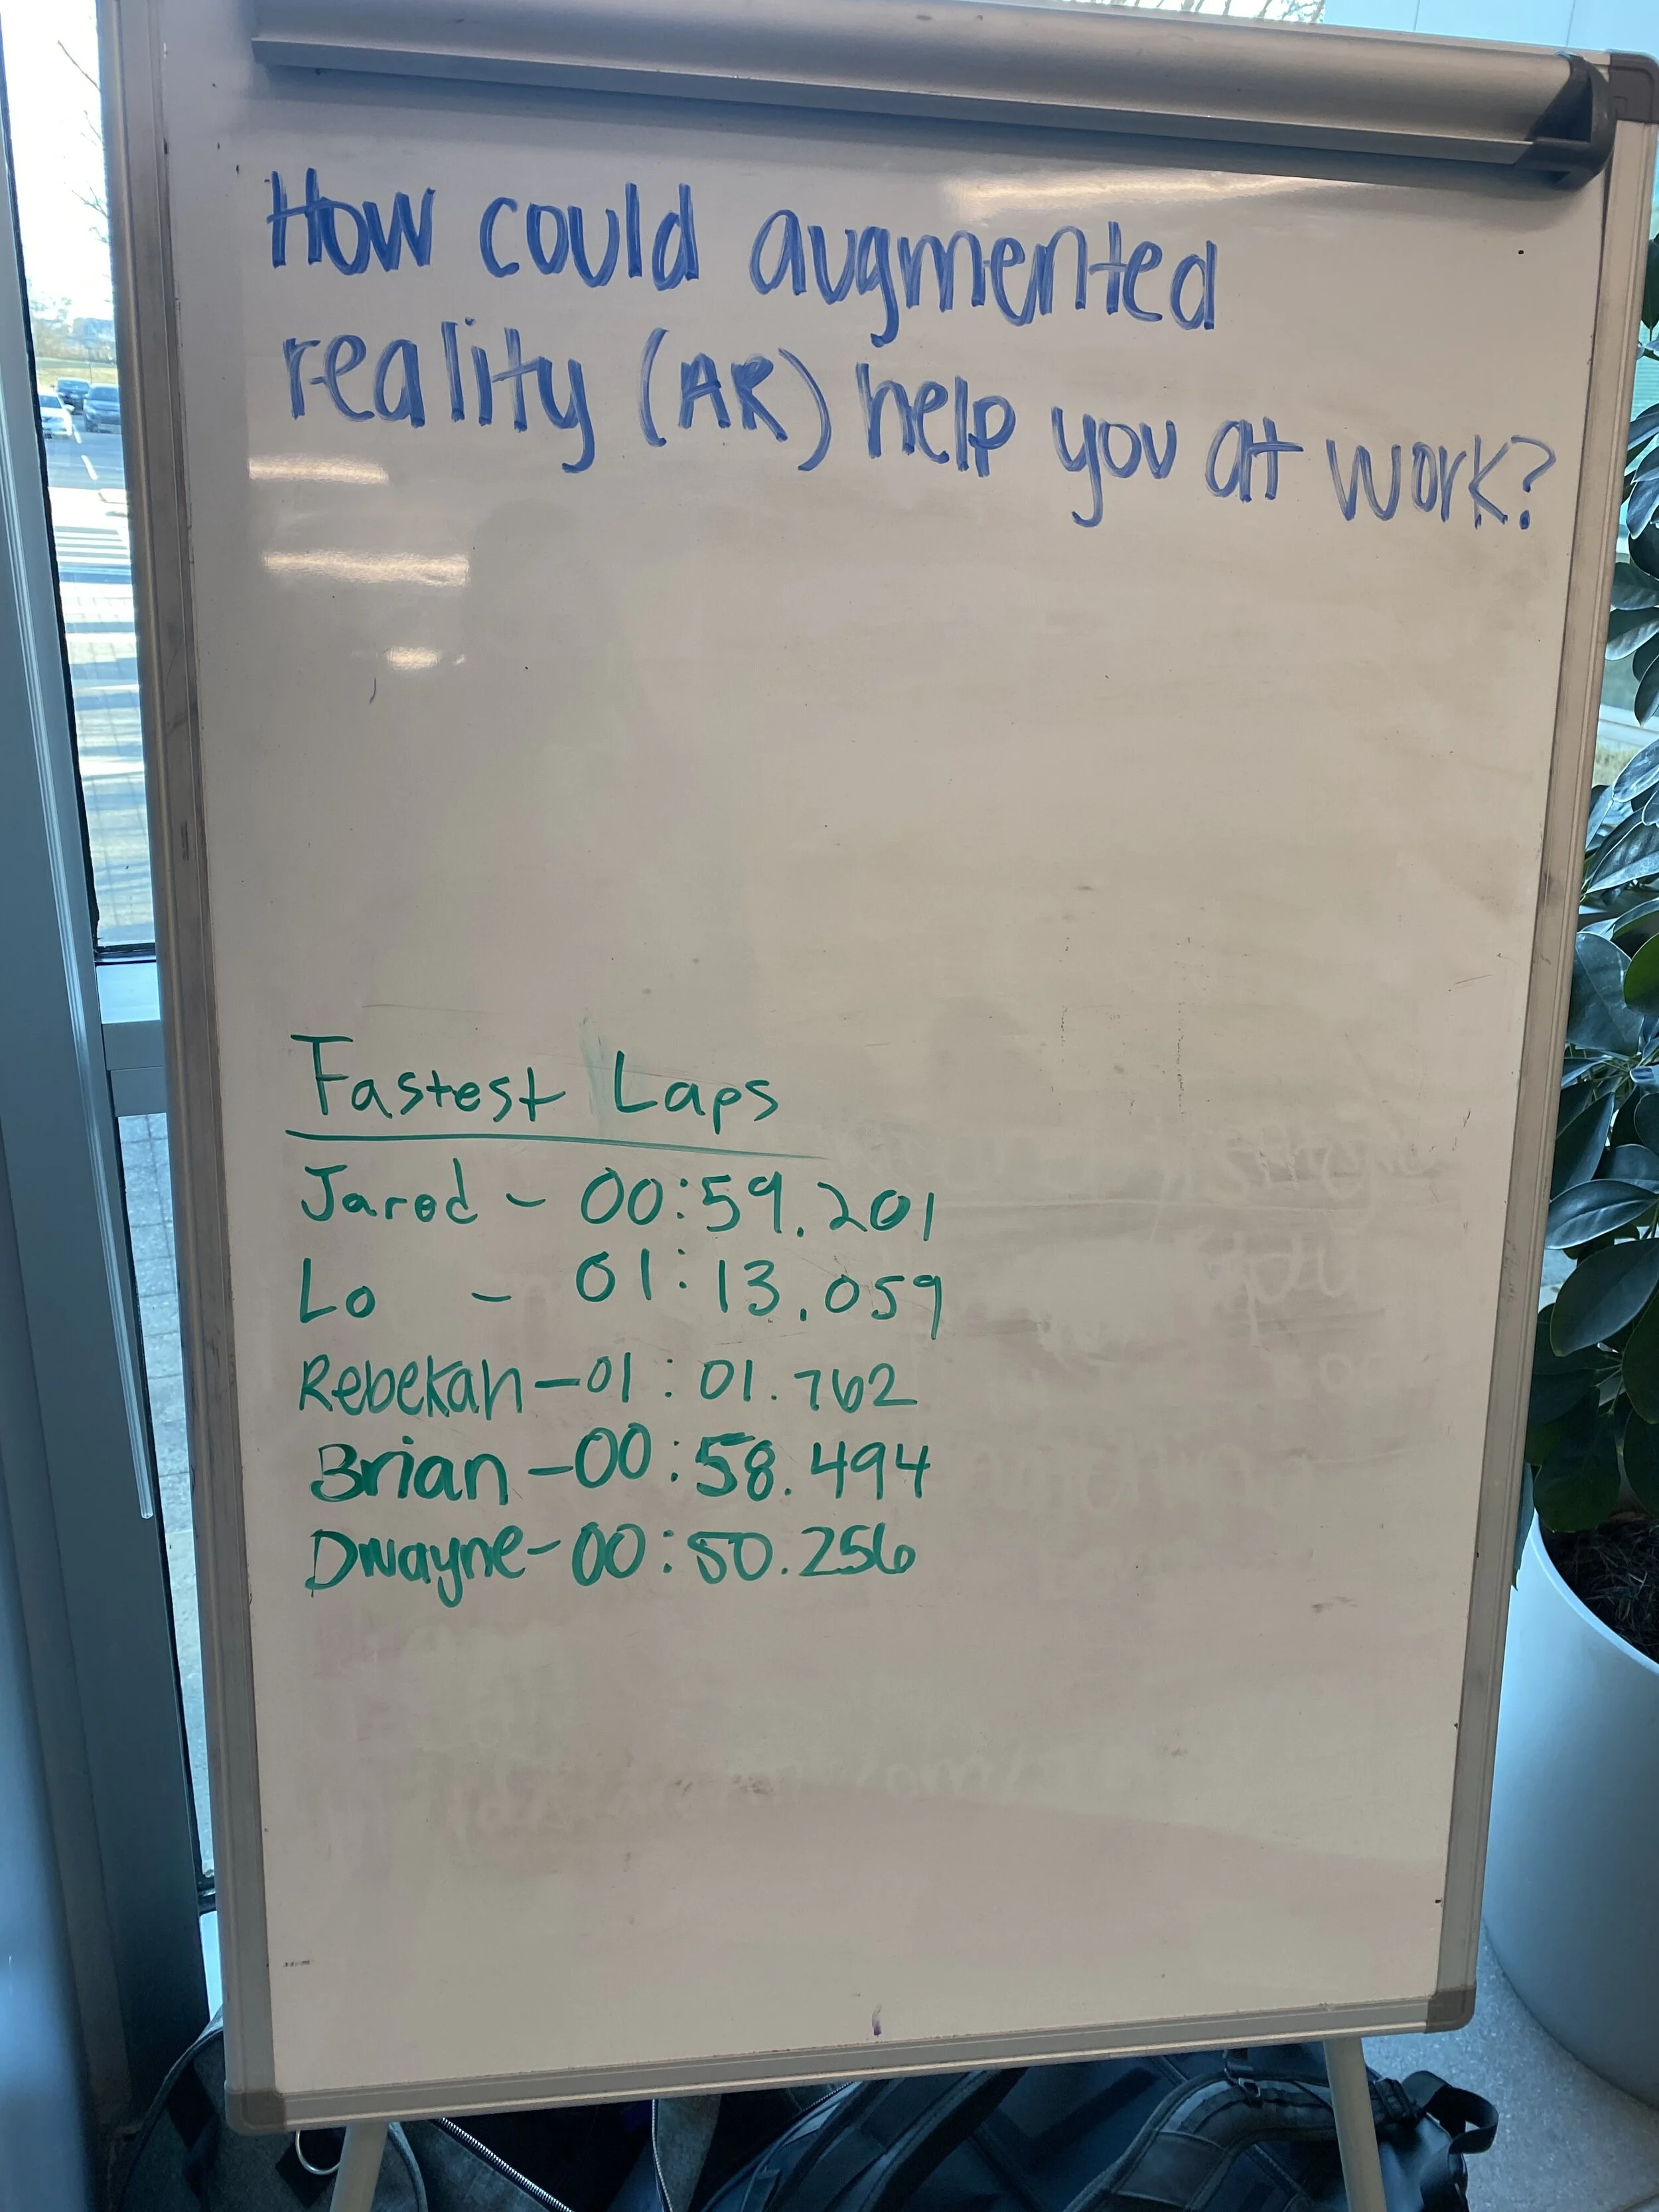 How could augmented
reality (AR) help you at work?
Fastest Laps
Jared - 00:59.201
Lo - 01:13.059
Rebekah - 01:01.762
Brian - 00:58.494
Dwayne - 00:50.256